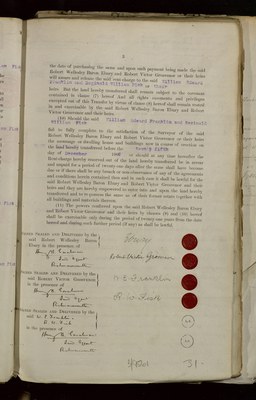 3
the date of purchasing the same and upon such payment being made the said
Robert Wellesley Baron Ebury and Robert Victor Grosvenor or their heirs
will assure and release the said rent charge to the said William Edward
Franklin and Reginald William Fisk or their
heirs. But the land hereby transferred shall remain subject to the covenant
contained in clause (7) hereof and all rights easements and privileges
excepted out of this Transfer by virtue of clause (8) hereof shall remain vested
in and exerciseable by the said Robert Wellesley Baron Ebury and Robert
Victor Grosvenor and their heirs.
(10) Should the said William Edward Franklin and Reginald
William Fisk
fail to fully complete to the satisfaction of the Surveyor of the said
Robert Wellesley Baron Ebury and Robert Victor Grosvenor or their heirs
the messuage or dwelling house and buildings now in course of erection on
the land hereby transferred before the
day of December or should at any time hereafter the
Rent-charge hereby reserved out of the land hereby transferred be in arrear
and unpaid for a period of twenty one days after the same shall have become
due or if there shall be any breach or non-observance of any of the agreements
and conditions herein contained then and in such case it shall be lawful for the
said Robert Wellesley Baron Ebury and Robert Victor Grosvenor and their
heirs and they are hereby empowered to enter into and upon the land hereby
transferred and to re-possess the same as of their former estate together with
all buildings and materials thereon.
(11) The powers conferred upon the said Robert Wellesley Baron Ebury
and Robert Victor Grosvenor and their heirs by clauses (8) and (10) hereof
shall be exerciseable only during the period of twenty one years from the date
hereof and during such further period (if any) as shall be lawful.
Signed Sealed and Delivered by the
said Robert Wellesley Baron
Ebury in the presence of
Ebury
Robert Victor Grosvenor
Signed Sealed and Delivered by the
said Robert Victor Grosvenor
in the presence of
W. E. Franklin
R. W. Fisk
Signed Sealed and Delivered by the
said W. E. Franklin &
R. W. Fisk
in the presence of
31.